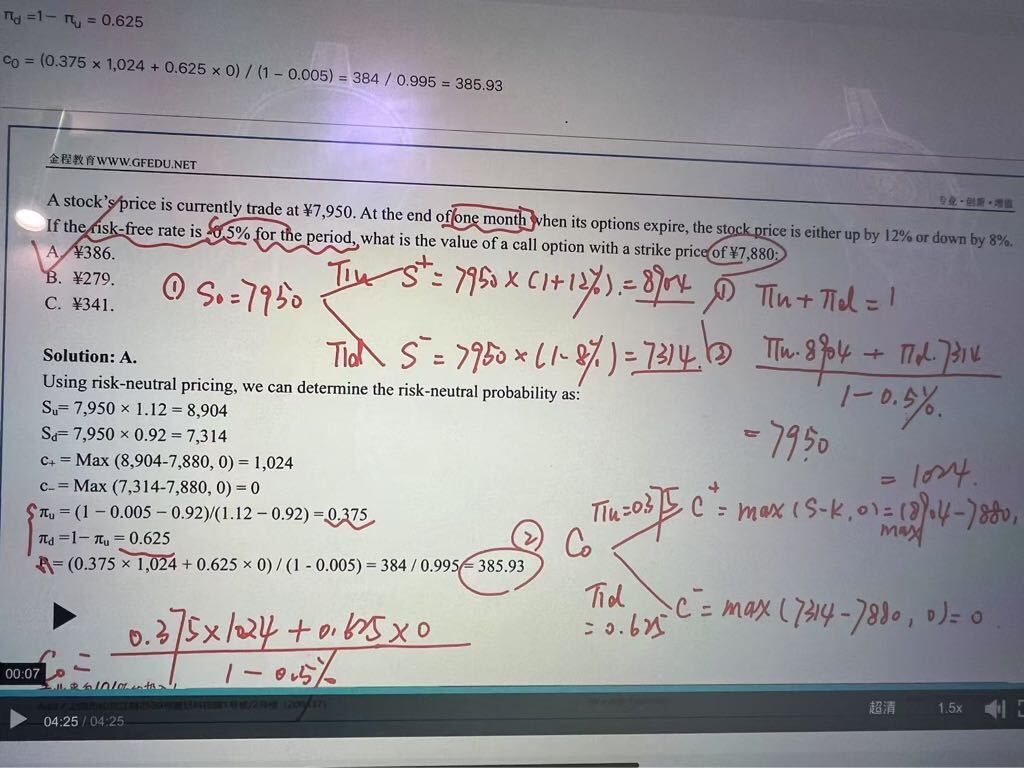 πd =1− πu = 0.625
c0 = (0.375 × 1,024 + 0.625 × 0) / (1 − 0.005) = 384 / 0.995 = 385.93
金程教育WWW.GFEDU.NET
专业·创新·增值
A stock's price is currently trade at ¥7,950. At the end of one month when its options expire, the stock price is either up by 12% or down by 8%.
If the risk-free rate is -0.5% for the period, what is the value of a call option with a strike price of ¥7,880:
A. ¥386.
B. ¥279.
C. ¥341.
① S0 = 7950
πu S+ = 7950 × (1+12%) = 8904
πd S− = 7950 × (1-8%) = 7314
① πu + πd = 1
② πu·8904 + πd·7314
1 - 0.5%
= 7950
Solution: A.
Using risk-neutral pricing, we can determine the risk-neutral probability as:
Su= 7,950 × 1.12 = 8,904
Sd= 7,950 × 0.92 = 7,314
c+ = Max (8,904-7,880, 0) = 1,024
c− = Max (7,314-7,880, 0) = 0
πu = (1 − 0.005 − 0.92)/(1.12 − 0.92) = 0.375
πd =1− πu = 0.625
= (0.375 × 1,024 + 0.625 × 0) / (1 - 0.005) = 384 / 0.995 = 385.93
= 1024.
② C0
πu=0.375 C+ = max (S-K, 0) = (8904-7880,
max
πd
= 0.625
C− = max (7314-7880, 0) = 0
C0 =
0.375×1024 + 0.625×0
1 - 0.5%
00:07
04:25 / 04:25
超清
1.5x